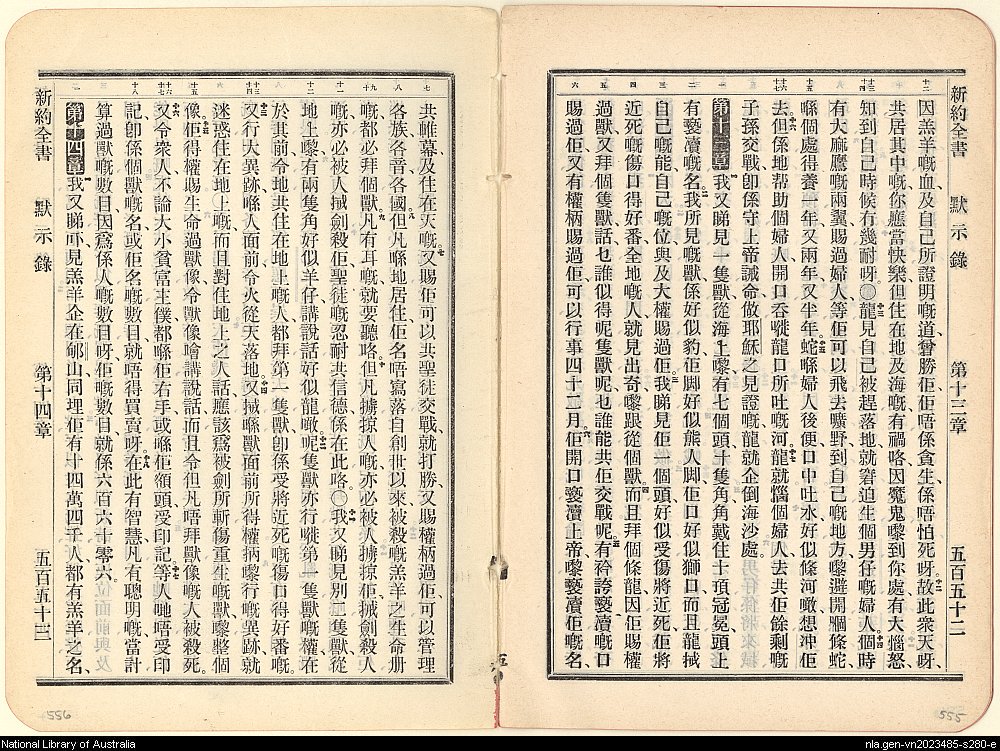 新約全書 默示錄 第十三章 五百五十二
因羔羊嘅血、及自己所證明嘅道、曾勝佢、佢唔係貪生、係唔怕死呀。故此衆天呀、
共居其中嘅、你應當快樂、但住在地及海嘅有禍咯、因魔鬼嚟到你處、有大惱怒、
知到自己時候有幾耐呀。〇龍見自己被趕落地、就窘迫生個男仔嘅婦人。個時
有大麻鷹嘅兩翼、賜過婦人、等佢可以飛去曠野、到自己嘅地方、嚟避開嗰條蛇、
喺個處得養一年、又兩年、又半年。蛇喺婦人後便、口中吐水好似條河噉、想沖佢
去。但係地帮助個婦人、開口吞嗰龍口所吐嘅河。龍就惱個婦人、去共佢餘剩嘅
子孫交戰、卽係守上帝誡命、做耶穌之見證嘅、龍就企倒海沙處。
第十三章 我又睇見一隻獸、從海上嚟、有七個頭、十隻角、角戴住十頂冠冕、頭上
有褻瀆嘅名。我所見嘅獸、係好似豹、佢脚好似熊人脚、佢口好似獅口、而且龍搣
自己嘅能、自己嘅位、與及大權賜過佢。我睇見佢一個頭、好似受傷將近死、佢將
近死嘅傷口得好番、全地嘅人就見出奇、嚟跟從個獸。而且拜個條龍、因佢賜權
過獸、又拜個隻獸、話、乜誰似得呢隻獸呢、乜誰能共佢交戰呢。有矜誇褻瀆嘅口
賜過佢、又有權柄賜過佢、可以行事四十二月。佢開口褻瀆上帝、嚟褻瀆佢嘅名、
555
新約全書 默示錄 第十四章 五百五十三
共帷幕、及住在天嘅。又賜佢可以共聖徒交戰、就打勝、又賜權柄過佢、可以管理
各族、各音、各國。但凡喺地居住、佢名唔寫落自創世以來、被殺嘅羔羊之生命册
嘅、都必拜個獸。凡有耳嘅、就要聽咯。但凡擄掠人嘅、亦必被人擄掠、佢搣劍殺人
嘅、亦必被人搣劍殺佢、聖徒嘅忍耐共信德、係在此咯。〇我又睇見別一隻獸、從
地上嚟、有兩隻角、好似羊仔、講說話好似龍噉。呢隻獸亦行嗰第一隻獸嘅權、在
於其前、令地共住在地上嘅人、都拜第一隻獸、卽係受將近死嘅傷口得好番嘅。
又行大異跡、喺人面前、令火從天落地。又搣喺獸面前所得權柄嚟行嘅異跡、就
迷惑住在地上嘅、而且對住地上之人話、應該爲被劍所斬傷、重生嘅獸、嚟整個
像。佢得權賜生命過獸像、令獸像噲講說話、而且令但凡唔拜獸像嘅人被殺死。
又令衆人不論大小貧富、主僕、都喺佢右手、或喺佢額頭、受印記。等人哋唔受印
記、卽係個獸嘅名、或佢名嘅數目、就唔得買賣呀。在此有智慧、凡有聰明嘅、當計
算過獸嘅數目、因爲係人嘅數目呀、佢嘅數目、就係六百六十零六。
第十四章 我又睇吓、見羔羊企在郇山、同埋佢有十四萬四千人、都有羔羊之名、
556
National Library of Australia
nla.gen-vn2023485-s280-e